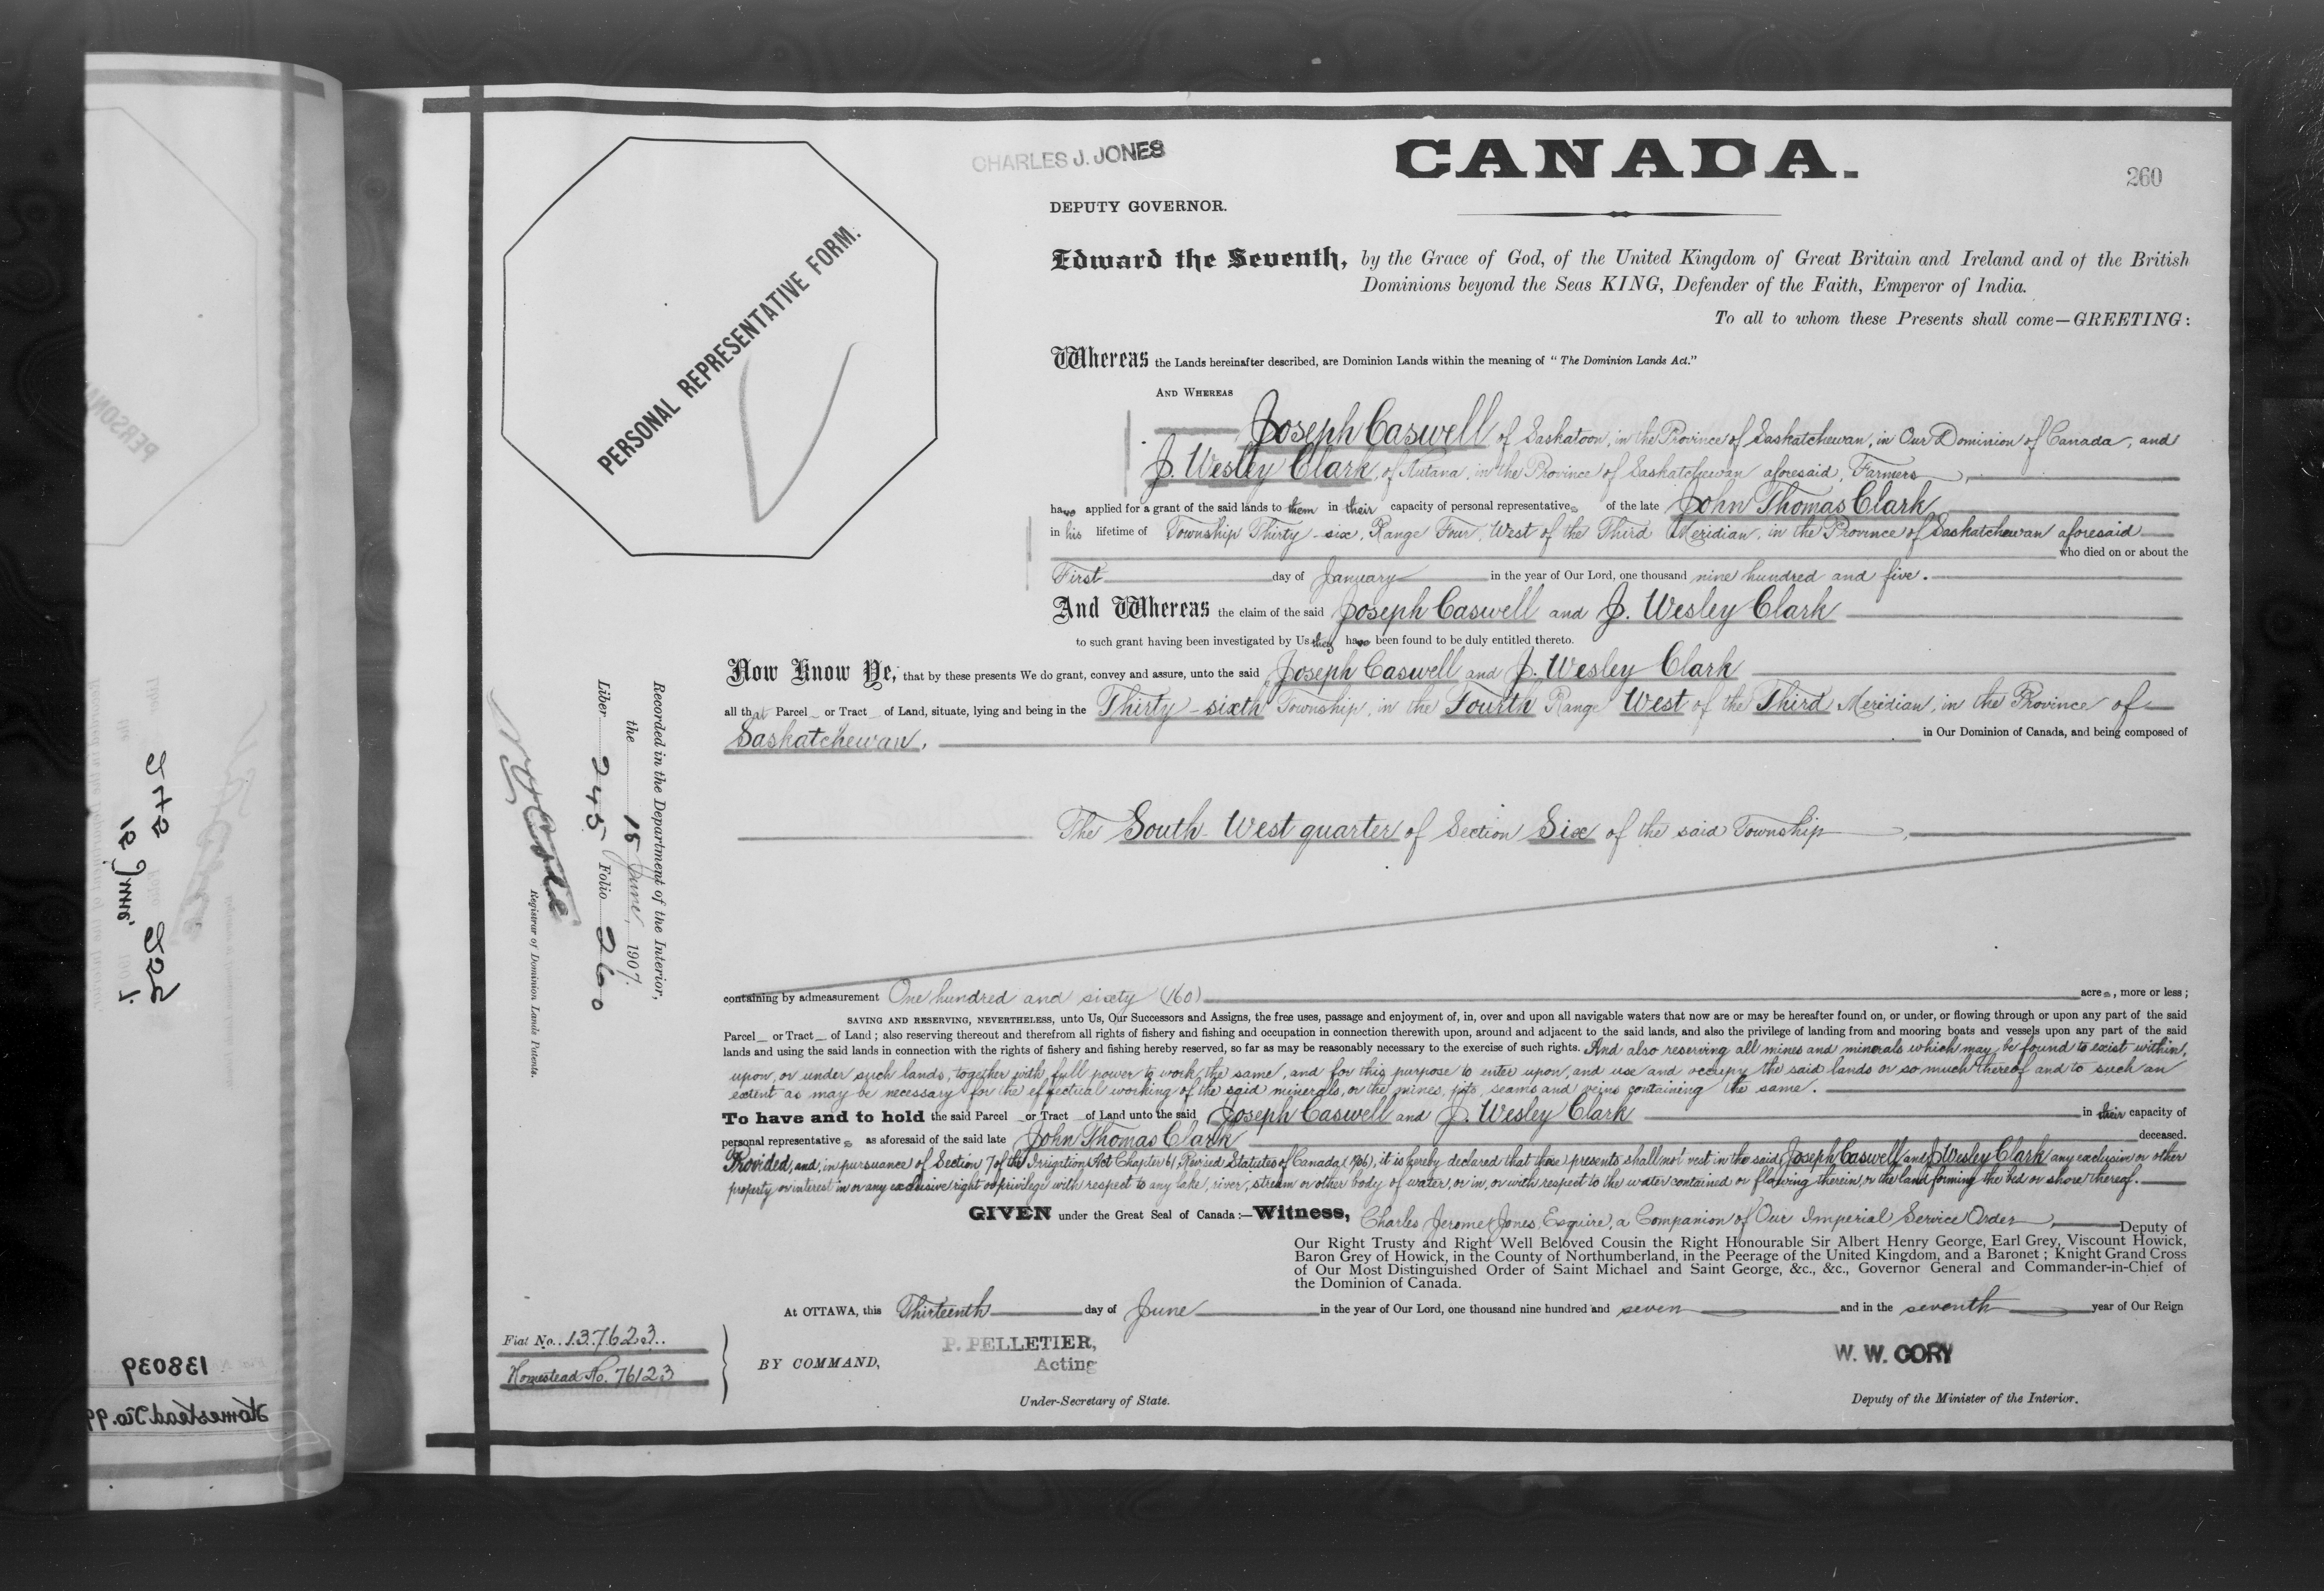 CHARLES J. JONES
CANADA.
260
DEPUTY GOVERNOR.
PERSONAL REPRESENTATIVE FORM.
Edward the Seventh, by the Grace of God, of the United Kingdom of Great Britain and Ireland and of the British
Dominions beyond the Seas KING, Defender of the Faith, Emperor of India.
To all to whom these Presents shall come—GREETING:
Whereas the Lands hereinafter described, are Dominion Lands within the meaning of "The Dominion Lands Act."
AND WHEREAS
Joseph Caswell of Saskatoon, in the Province of Saskatchewan, in Our Dominion of Canada, and
J. Wesley Clark, of Nutana, in the Province of Saskatchewan aforesaid, Farmers,
have applied for a grant of the said lands to them in their capacity of personal representatives of the late John Thomas Clark
in his lifetime of Township Thirty-six, Range Four, West of the Third Meridian, in the Province of Saskatchewan aforesaid
who died on or about the
First day of January in the year of Our Lord, one thousand nine hundred and five.
And Whereas the claim of the said Joseph Caswell and J. Wesley Clark
to such grant having been investigated by Us they have been found to be duly entitled thereto.
Now Know Ye, that by these presents We do grant, convey and assure, unto the said Joseph Caswell and J. Wesley Clark
all that Parcel or Tract of Land, situate, lying and being in the Thirty-sixth Township, in the Fourth Range West of the Third Meridian, in the Province of
Saskatchewan, in Our Dominion of Canada, and being composed of
The South West quarter of Section Six of the said Township,
containing by admeasurement One hundred and sixty (160) acres, more or less;
SAVING AND RESERVING, NEVERTHELESS, unto Us, Our Successors and Assigns, the free uses, passage and enjoyment of, in, over and upon all navigable waters that now are or may be hereafter found on, or under, or flowing through or upon any part of the said
Parcel or Tract of Land; also reserving thereout and therefrom all rights of fishery and fishing and occupation in connection therewith upon, around and adjacent to the said lands, and also the privilege of landing from and mooring boats and vessels upon any part of the said
lands and using the said lands in connection with the rights of fishery and fishing hereby reserved, so far as may be reasonably necessary to the exercise of such rights. And also reserving all mines and minerals which may be found to exist within,
upon, or under such lands, together with full power to work the same, and for this purpose to enter upon, and use and occupy the said lands or so much thereof and to such an
extent as may be necessary for the effectual working of the said minerals, or the mines, pits, seams and veins containing the same.
To have and to hold the said Parcel or Tract of Land unto the said Joseph Caswell and J. Wesley Clark in their capacity of
personal representatives as aforesaid of the said late John Thomas Clark deceased.
Provided, and, in pursuance of Section 7 of the Irrigation Act Chapter 61, Revised Statutes of Canada, (1906), it is hereby declared that these presents shall not vest in the said Joseph Caswell and J. Wesley Clark any exclusive or other
property or interest in or any exclusive right or privilege with respect to any lake, river, stream or other body of water, or in, or with respect to the water contained or flowing therein, or the land forming the bed or shore thereof.
GIVEN under the Great Seal of Canada:—Witness, Charles Jerome Jones, Esquire, a Companion of Our Imperial Service Order, Deputy of
Our Right Trusty and Right Well Beloved Cousin the Right Honourable Sir Albert Henry George, Earl Grey, Viscount Howick,
Baron Grey of Howick, in the County of Northumberland, in the Peerage of the United Kingdom, and a Baronet; Knight Grand Cross
of Our Most Distinguished Order of Saint Michael and Saint George, &c., &c., Governor General and Commander-in-Chief of
the Dominion of Canada.
At OTTAWA, this Thirteenth day of June in the year of Our Lord, one thousand nine hundred and seven and in the seventh year of Our Reign
Fiat No. 137623
Homestead No. 76123
BY COMMAND,
P. PELLETIER,
Acting
Under-Secretary of State.
W. W. CORY
Deputy of the Minister of the Interior.
Recorded in the Department of the Interior,
the 18 June, 1907.
Liber 245 Folio 260
Registrar of Dominion Lands Patents.
138039
Homestead No. 99